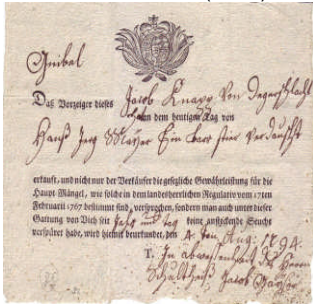 Gnibel
Daß Vorzeiger dieses Jacob Knapp von Degerschlacht
dem heutigen Tag von
Hanß Jerg Mayer Ein
erkauft, und nicht nur der Verkäufer die gesezliche Gewährleistung für die
Haupt-Mängel, wie solche in dem landesherrlichen Regulativ vom 17ten
Februarii 1767 bestimmt sind, versprochen, sondern man auch unter dieser
Gattung von Vieh seit Jahr und Tag keine ansteckende Seuche
verspüret habe, wird hiemit beurkundet, den 4. Aug. 1794.
T. In Abwesenheit des Herrn
Schultheiß Jacob